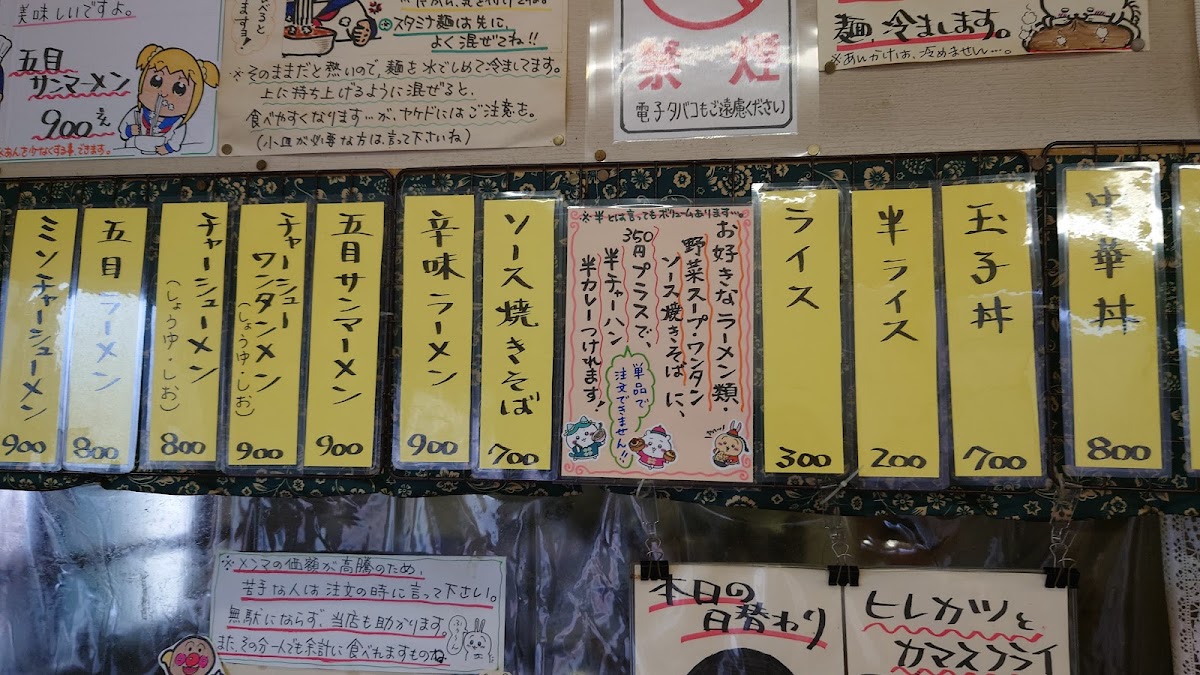 美味しいですよ。
五目
サンマーメン
900
スタミナ麺は先に、
よく混ぜてね!!
※そのままだと熱いので、麺を水でしめて冷ましてます。
上に持ち上げるように混ぜると、
食べやすくなります…が、ヤケドにはご注意を。
(小皿が必要な方は、言って下さいね)
禁煙
電子タバコもご遠慮ください
麺冷まします。
※あんかけは、冷めません…。
ミソチャーシューメン
900
五目ラーメン
800
チャーシューメン
(しょうゆ・しお)
800
チャーシュー
ワンタンメン
(しょうゆ・しお)
900
五目サンマーメン
900
辛味ラーメン
900
ソース焼きそば
700
※半とは言ってもボリュームあります…。
お好きなラーメン類・
野菜スープ・ワンタン
ソース焼きそばに、
350円プラスで、
半チャーハン
半カレーつけれます!
単品で
注文できません!!
ライス
300
半ライス
200
玉子丼
700
中華丼
800
※メンマの価額が高騰のため、
苦手な人は注文の時に言って下さい。
無駄にならず、当店も助かります。
また、その分一人でも余計に食べれますものね
本日の
日替わり
ヒレカツと
カマスフライ